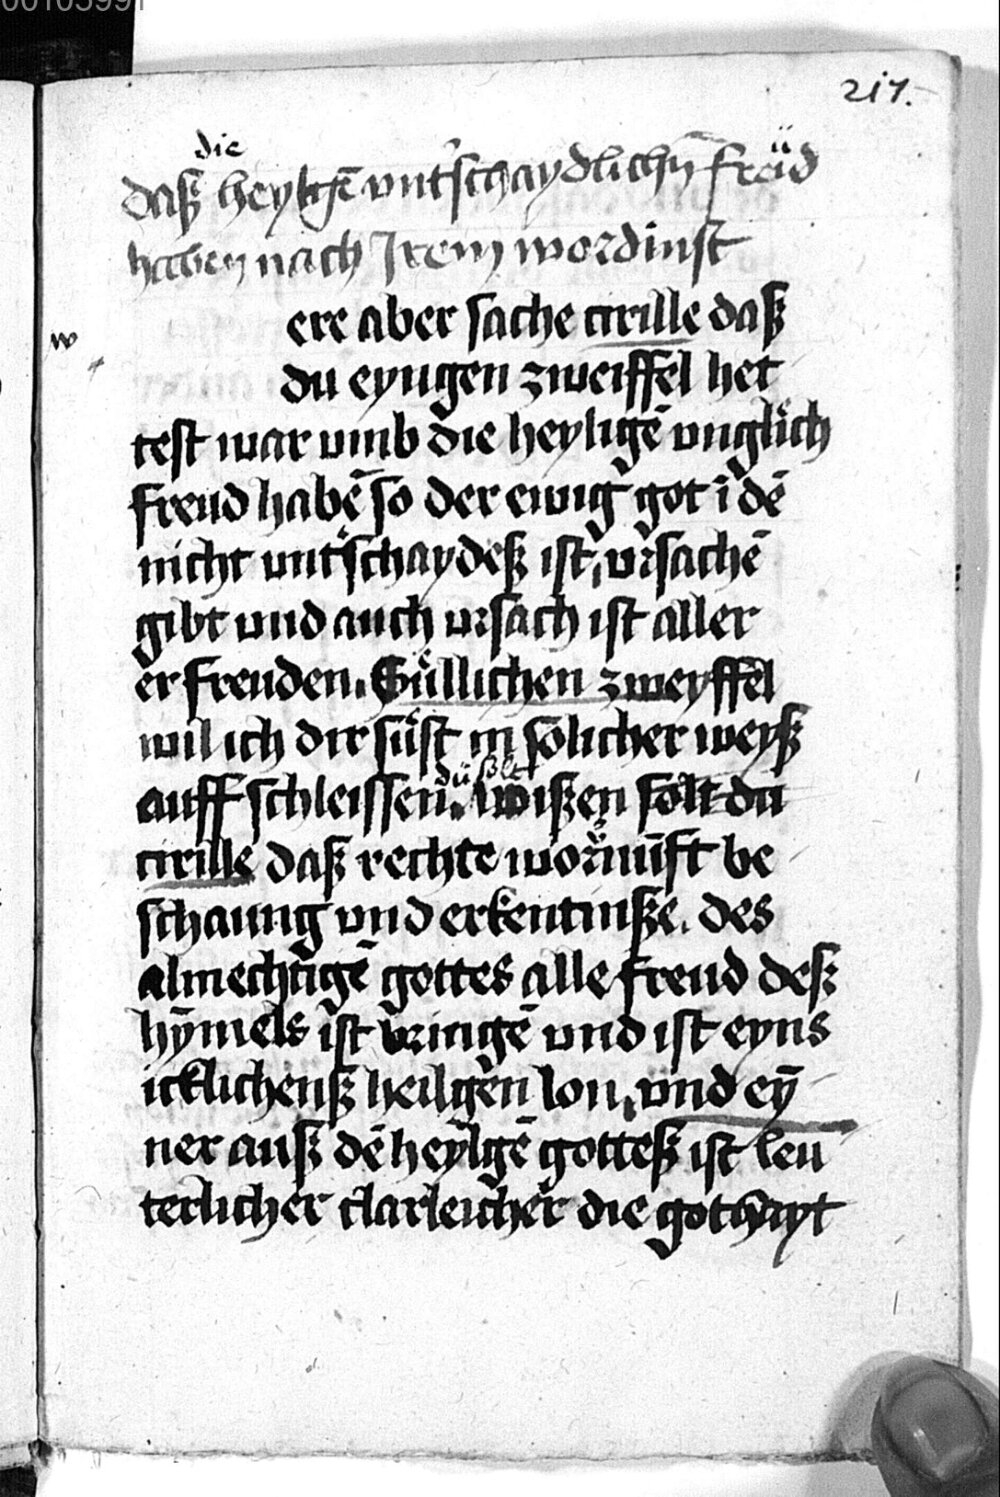 00103991
217.
die
daß heylgē vnt'schaydlichn̄ freüd
haben nach Irem wordinst
w
ere aber sache cirille daß
du eyngen zweiffel het
test war vmb die heyligē vnglich
freud habē so der ewig got ī dē
nicht vnt'schaydeß ist, vrsachē
gibt vnd auch vrsach ist aller
er freuden. Süllichen zweyffel
wil ich dir süst in sölicher weyß
dü solt
auff schleissen. wißen solt du
cirille daß rechte wornunft be
schaung vnd erkentnuße. des
almechtigē gottes alle freud deß
hȳmels ist bringē vnd ist eyns
icklichenß heilgen lon, vnd eȳ
ner auß dē heylgē gotteß ist leu
terlicher clarleicher die gothayt